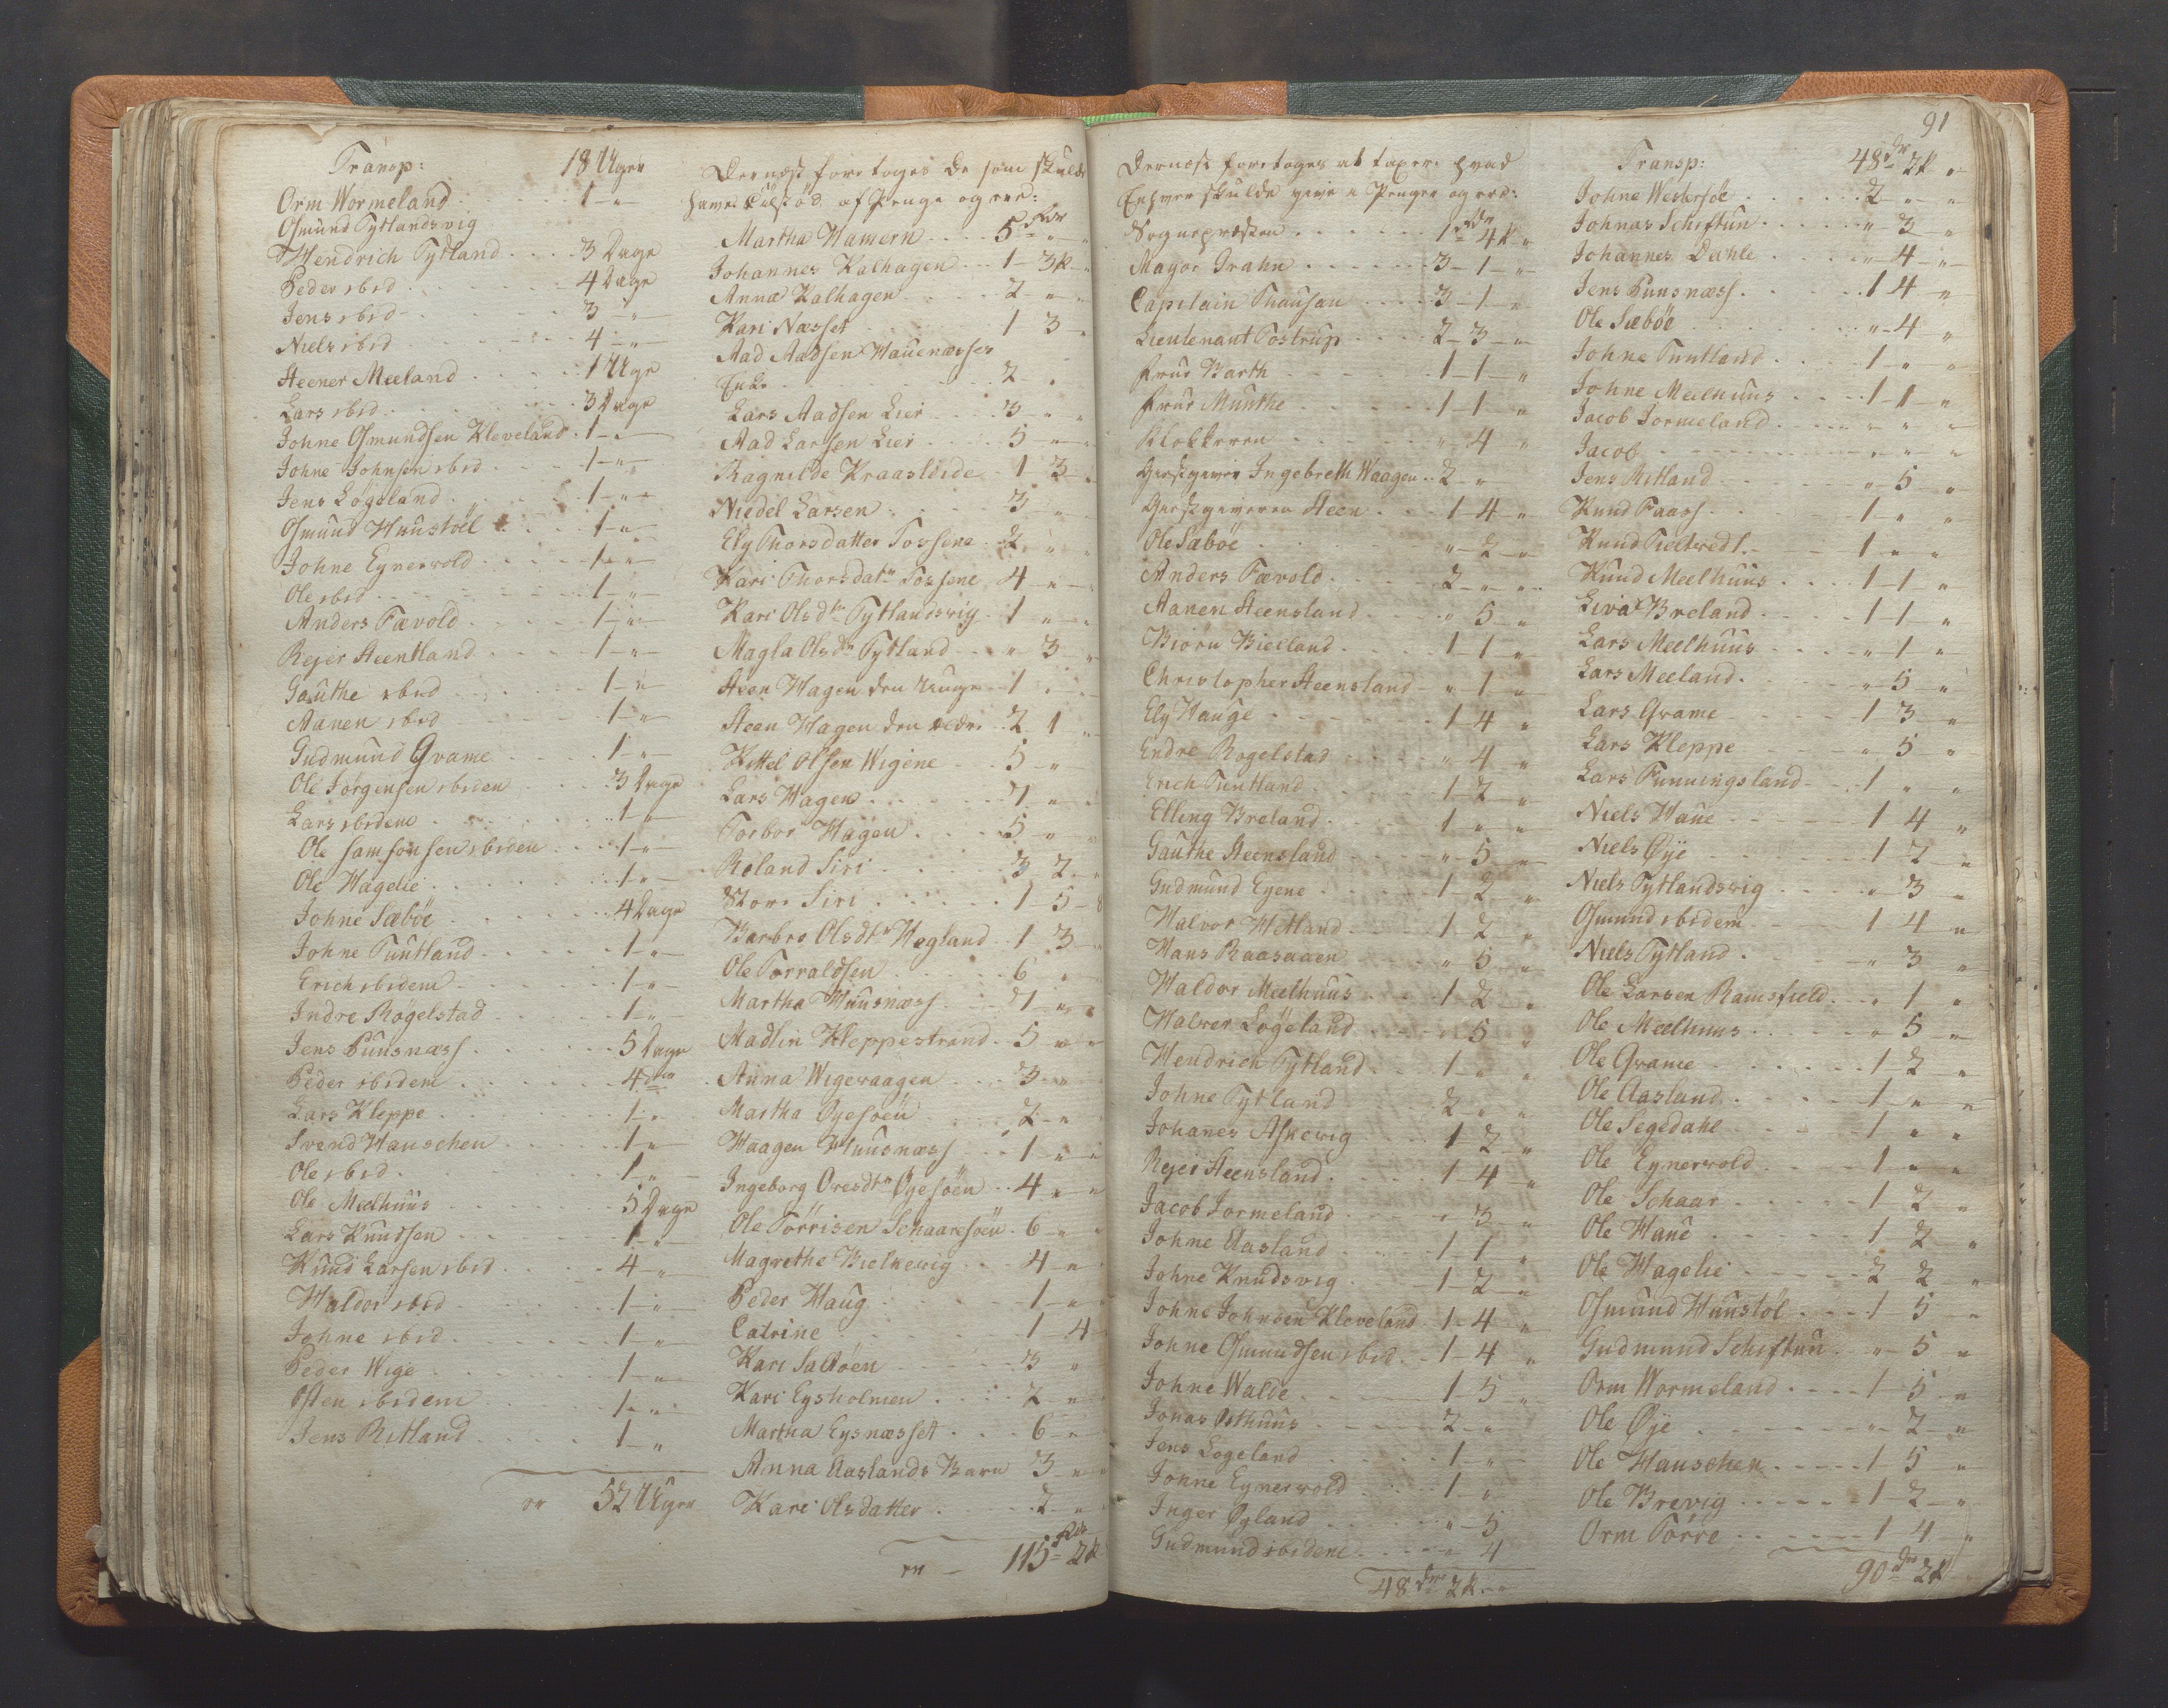 Transp: 18 Uger
Orm Wormeland 1 "
Osmund Tytlandsvig
Hendrich Tytland 3 Dage
Peder ibid 4 Dage
Jens ibid 3 "
Niels ibid 4 "
Steener Meeland 1 Uge
Lars ibid 3 Dage
Johne Osmundsen Kleveland 1 "
Johne Johnsen ibid 1 "
Jens Løgeland 1 "
Osmund Huustöel 1 "
Johne Eynervold 1 "
Ole ibid 1 "
Anders Fævold 1 "
Rejer Steensland 1 "
Gauthe ibid 1 "
Aanen ibid 1 "
Gudmund Qvame 1 "
Ole Jørgensen ibidem 3 Dage
Lars ibidem 1 "
Ole Samsonsen ibidem 1 "
Ole Hagelie 1 "
Johne Sæböe 4 Dage
Johne Tuntland 1 "
Erich ibidem 1 "
Indre Rögelstad 1 "
Jens Puusnæss 5 Dage
Peder ibidem 4 do
Lars Kleppe 1 "
Svend Hauschen 1 "
Ole ibid 1 "
Ole Meelhuus 5 Dage
Lars Knudsen 1 "
Knud Larsen ibid 4 "
Haldor ibid 1 "
Johne ibid 1 "
Peder Wige 1 "
Osten ibidem 1 "
Jens Ritland 1 "
er 52 Uger
Dernæst foretoges de som skulde
have tilstöd af Penge og ere:
Martha Hamern 5 dr "
Johannes Kalhagen 1 3 k "
Anna Kalhagen 2 " "
Kari Næsset 1 3 "
Aad Aadsen Hauenæsses
Enke 2 "
Lars Aadsen Lier 3 " "
Aad Larsen Lier 5 " "
Ragnilde Kraasliide 1 3 "
Niedel Larsen 3 " "
Ely Thorsdatter Tossene 2 " "
Kari Thorsdatr Tossene 4 " "
Kari Olsdtr Tytlandsvig 1 " "
Magla Olsdr Tytland " 3 "
Steen Hagen den unge 1 " "
Steen Hagen den ældre 2 1 "
Kittel Olsen Wigene 5 "
Lars Hagen 7 " "
Torbor Hagen 5 " "
Roland Siri 3 2 "
Store Siri 1 5
Barbro Olsdtr Hegland 1 3 "
Ole Torraldsen 6 "
Martha Huusnæss 7 " "
Madlin Kleppestrand 5 " "
Anna Wigevaagen 3 "
Martha Øjesøen 2 "
Haagen Huusnæss 1 " "
Ingeborg Oresdtr Øjesöen 4 " "
Ole Törrisen Schaaresöen 6 "
Magrethe Bielkevig 4 "
Peder Haug 1 " "
Catrine 1 4
Kari Saltöen 3 "
Kari Eysholmen 2 "
Martha Eysnæsset 6 "
Anna Aaslands Barn 3 "
Kari Olsdatter 2 "
er 115 Rdr 2 k
91
Dernæst foretoges at taxere hvad
Enhver skulde give i Penger og ere:
Sognepræsten 1 rdr 4 k "
Mayor Grahn 3 1 "
Capitain Thausan 3 1 "
Lieutenant Töstrup 2 3 "
Frue Barth 1 1 "
Frue Munthe 1 1 "
Klokkeren " 4 "
Giestgiver Ingebreth Waagen 2 "
Giestgiveren Steen 1 4 "
Ole Sæböe " 2 "
Anders Fævold 2 " "
Aanen Steensland " 5 "
Biörn Bielland 1 1 "
Christopher Steensland " 1 "
Ely Hauge 1 4 "
Endre Rogelstad " 4 "
Erich Tuntland 1 2 "
Elling Breland 1 " "
Gauthe Steensland " 5 "
Gudmund Eyene 1 2 "
Halvor Hetland 1 2 "
Hans Raasaaen " 5 "
Haldor Meelhuus 1 2 "
Halver Logeland " 5 "
Hendrich Tytland 1 " "
Johne Tytland 2 " "
Johanes Askevig 1 2 "
Rejer Steensland 1 4 "
Jacob Jormeland " 3 "
Johne Aasland 1 1 "
Johne Knudsvig 1 2 "
Johne Johnsen Kleveland 1 4 "
Johne Osmundsen ibid 1 4 "
Johne Walde 1 5 "
Jonas Osthuus 2 "
Jens Logeland 1 "
Johne Eynervold 1 "
Inger Øyland " 5
Gudmund ibidem " 4
48 dr 2 k "
Transp: 48 dr 2 k "
Johne Westersöe 2 " "
Johnas Schiftun " 3 "
Johannes Dahle " 4 "
Jens Puusnæss 1 4 "
Ole Sæböe " 4 "
Johne Tuntland 1 " "
Johne Meelhuus 1 1 "
Jacob Jormeland " " "
Jacob " " "
Jens Ritland " 5 "
Knud Faass 1 " "
Knud Tieltvedt 1 " "
Knud Meelhuus 1 1 "
Liva Breland 1 1 "
Lars Meelhuus " 1 "
Lars Meeland " 5 "
Lars Qvame 1 3 "
Lars Kleppe " 5 "
Lars Funningsland 1 " "
Niels Haue 1 4 "
Niels Øje 1 2 "
Niels Tytlandsvig " 3 "
Osmund ibidem 1 4 "
Niels Tytland " 3 "
Ole Larsen Ramsfield " 1 "
Ole Meelhuus " 5 "
Ole Qvame 1 2 "
Ole Aasland 1 " "
Ole Segedahl 1 " "
Ole Eynervold 1 " "
Ole Schaar 1 2 "
Ole Haue 1 2 "
Ole Hagelie 2 2 "
Osmund Huustöl 1 5 "
Gudmund Schiftun " 5 "
Orm Wormeland 1 5 "
Ole Øje " 2 "
Ole Hauschen 1 5 "
Ole Brevig 1 2 "
Orm Törre 1 4 "
90 dr 2 k